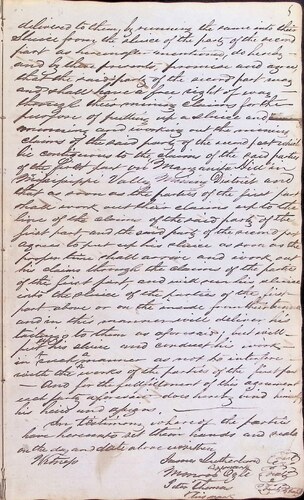 delivered to them by running the same into their
sluice from the sluice of the party of the second
part as herein after mentioned, do hereby
and by these presents, promise and agree
that the said party of the second part may
and shall have a free right of way
through their mining claims for the
purpose of putting up a sluice and
running and working out the mining
claims of the said party of the second part which
lie contiguous to the claims of the said parties
of the first part on
Mississippi Valley Mining District and
that as soon as the parties of the first part
shall work out their claims up to the
line of the claims of the said party of the
first part and the said party of the second
agrees to put up his sluice as soon as the
proper time shall arrive and work out
his claims through the claims of the parties
of the first part, and will run his sluice
into the sluice of the parties of the first
part above or at the
and in this manner will deliver his
tailings to them as aforesaid, and will
put his sluice and conduct his work
in such a manner as not to interfere
with the works of the parties of the first part
— And for the fulfillment of this agreement
each party
his heirs and assigns.
In testimony where of the parties
have hereunto set their hands and seals
on the day and date above written
Witness
Thomas